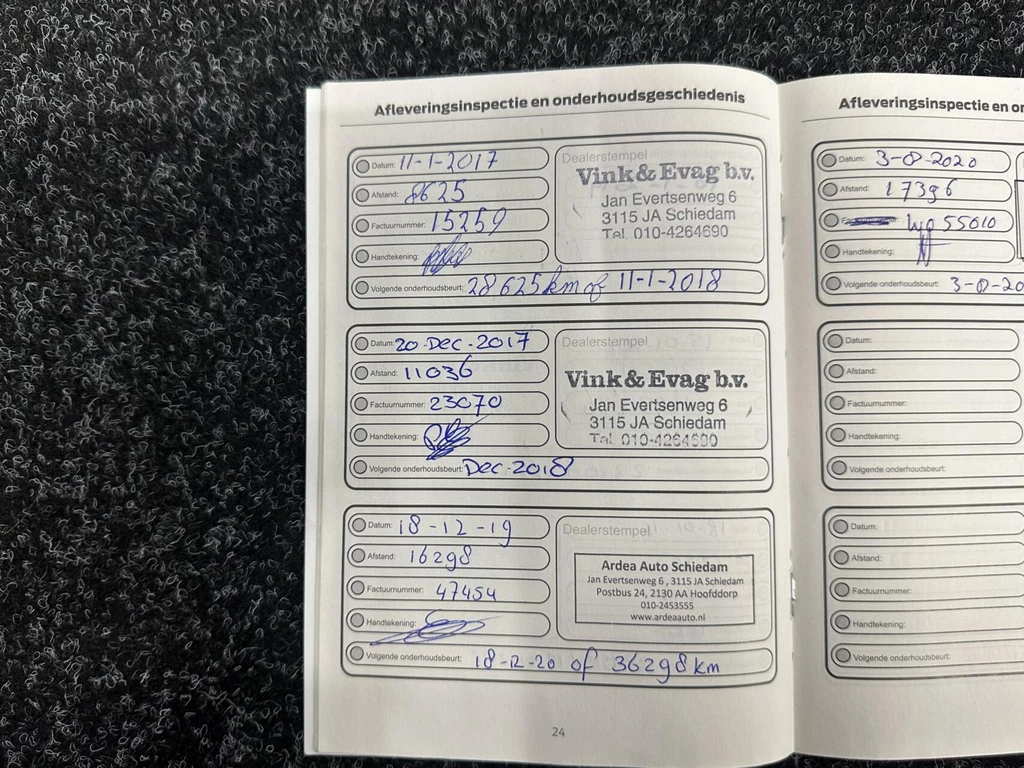 Afleveringsinspectie en onderhoudsgeschiedenis
Datum: 11-1-2017
Afstand: 8625
Factuurnummer: 15259
Handtekening:
Volgende onderhoudsbeurt: 28625km of 11-1-2018
Dealerstempel
Vink & Evag b.v.
Jan Evertsenweg 6
3115 JA Schiedam
Tel. 010-4264690
Datum: 20-Dec-2017
Afstand: 11036
Factuurnummer: 23070
Handtekening:
Volgende onderhoudsbeurt: Dec-2018
Dealerstempel
Vink & Evag b.v.
Jan Evertsenweg 6
3115 JA Schiedam
Tel. 010-4264690
Datum: 18-12-19
Afstand: 16298
Factuurnummer: 47454
Handtekening:
Volgende onderhoudsbeurt: 18-12-20 of 36298km
Dealerstempel
Ardea Auto Schiedam
Jan Evertsenweg 6, 3115 JA Schiedam
Postbus 24, 2130 AA Hoofddorp
010-2453555
www.ardeaauto.nl
24
Afleveringsinspectie en
Datum: 3-8-2020
Afstand: 17396
55010
Handtekening:
Volgende onderhoudsbeurt: 3-8-20
Datum:
Afstand:
Factuurnummer:
Handtekening:
Volgende onderhoudsbeurt:
Datum:
Afstand:
Factuurnummer:
Handtekening:
Volgende onderhoudsbeurt: